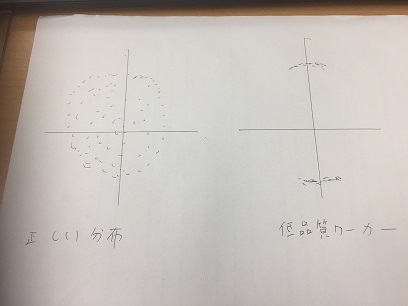 正しい分布
低品質ワーカー